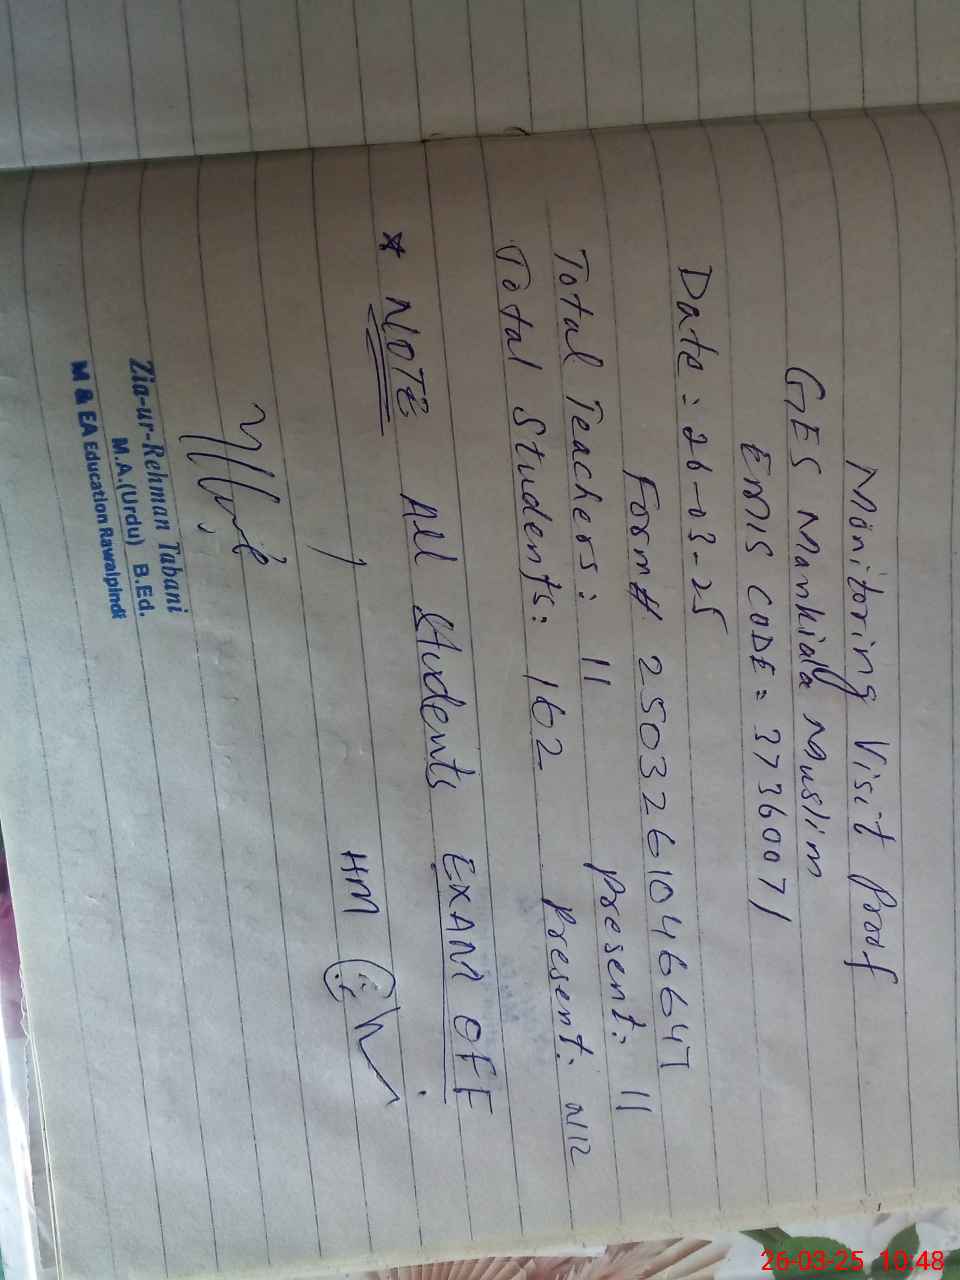 Monitoring Visit Proof
GES Mankiala Muslim
EMIS CODE = 37360071
Date: 26-03-25
Form# 25032610466647
Total Teachers: 11 Present: 11
Total Students: 162 Present: Nil
* NOTE All Students EXAM OFF
HM
Zia-ur-Rehman Tabani
M.A.(Urdu) B.Ed.
M & EA Education Rawalpindi
26-03-25 10:48